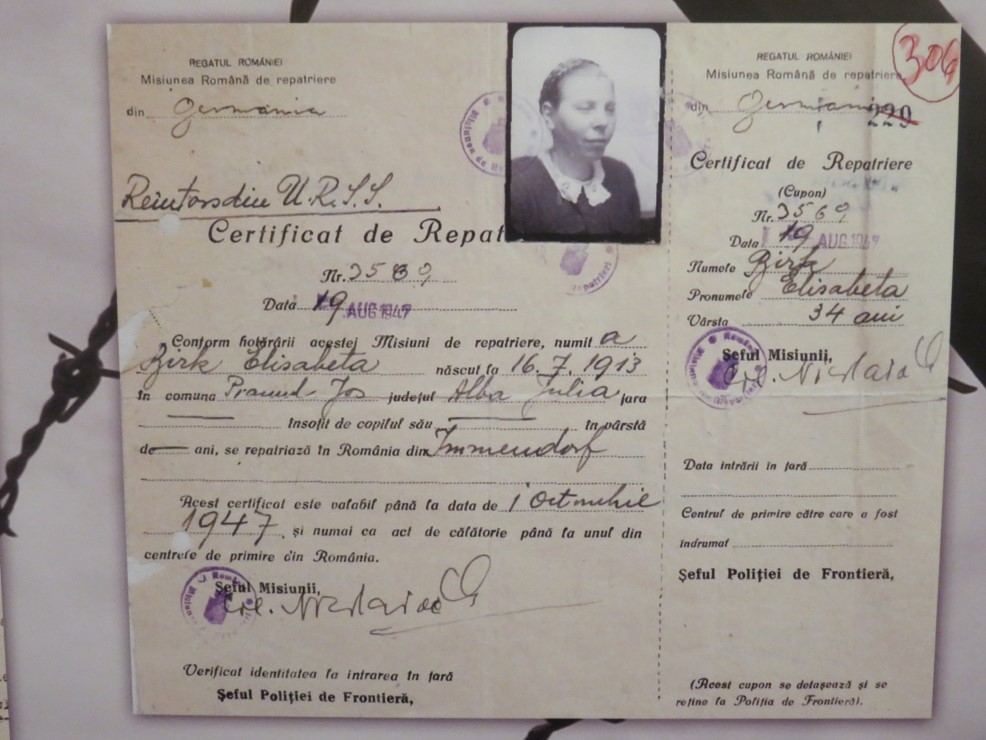 REGATUL ROMÂNIEI
Misiunea Română de repatriere
din Germania
Reîntors din U.R.S.S.
Certificat de Repat
Nr. 3569
Data 19 AUG 1947
Conform hotărârii acestei Misiuni de repatriere, numit a
Birk Elisabeta născut la 16.7.1913
în comuna Jos județul Alba Julia țara
însoțit de copilul său în vârstă
de ani, se repatriază în România din Immendorf
Acest certificat este valabil până la data de 1 Octombrie
1947, și numai ca act de călătorie până la unul din
centrele de primire din România.
Șeful Misiunii,
Verificat identitatea la intrarea în țară
Șeful Poliției de Frontieră,
306
REGATUL ROMÂNIEI
Misiunea Română de repatriere
din Germania
Certificat de Repatriere
(Cupon)
Nr. 3569
Data 19 AUG 1947
Numele Birk
Pronumele Elisabeta
Vârsta 34 ani
Șeful Misiunii,
Data intrării în țară
Centrul de primire către care a fost
îndrumat
Șeful Poliției de Frontieră,
(Acest cupon se detașează și se
reține la Poliția de Frontieră).